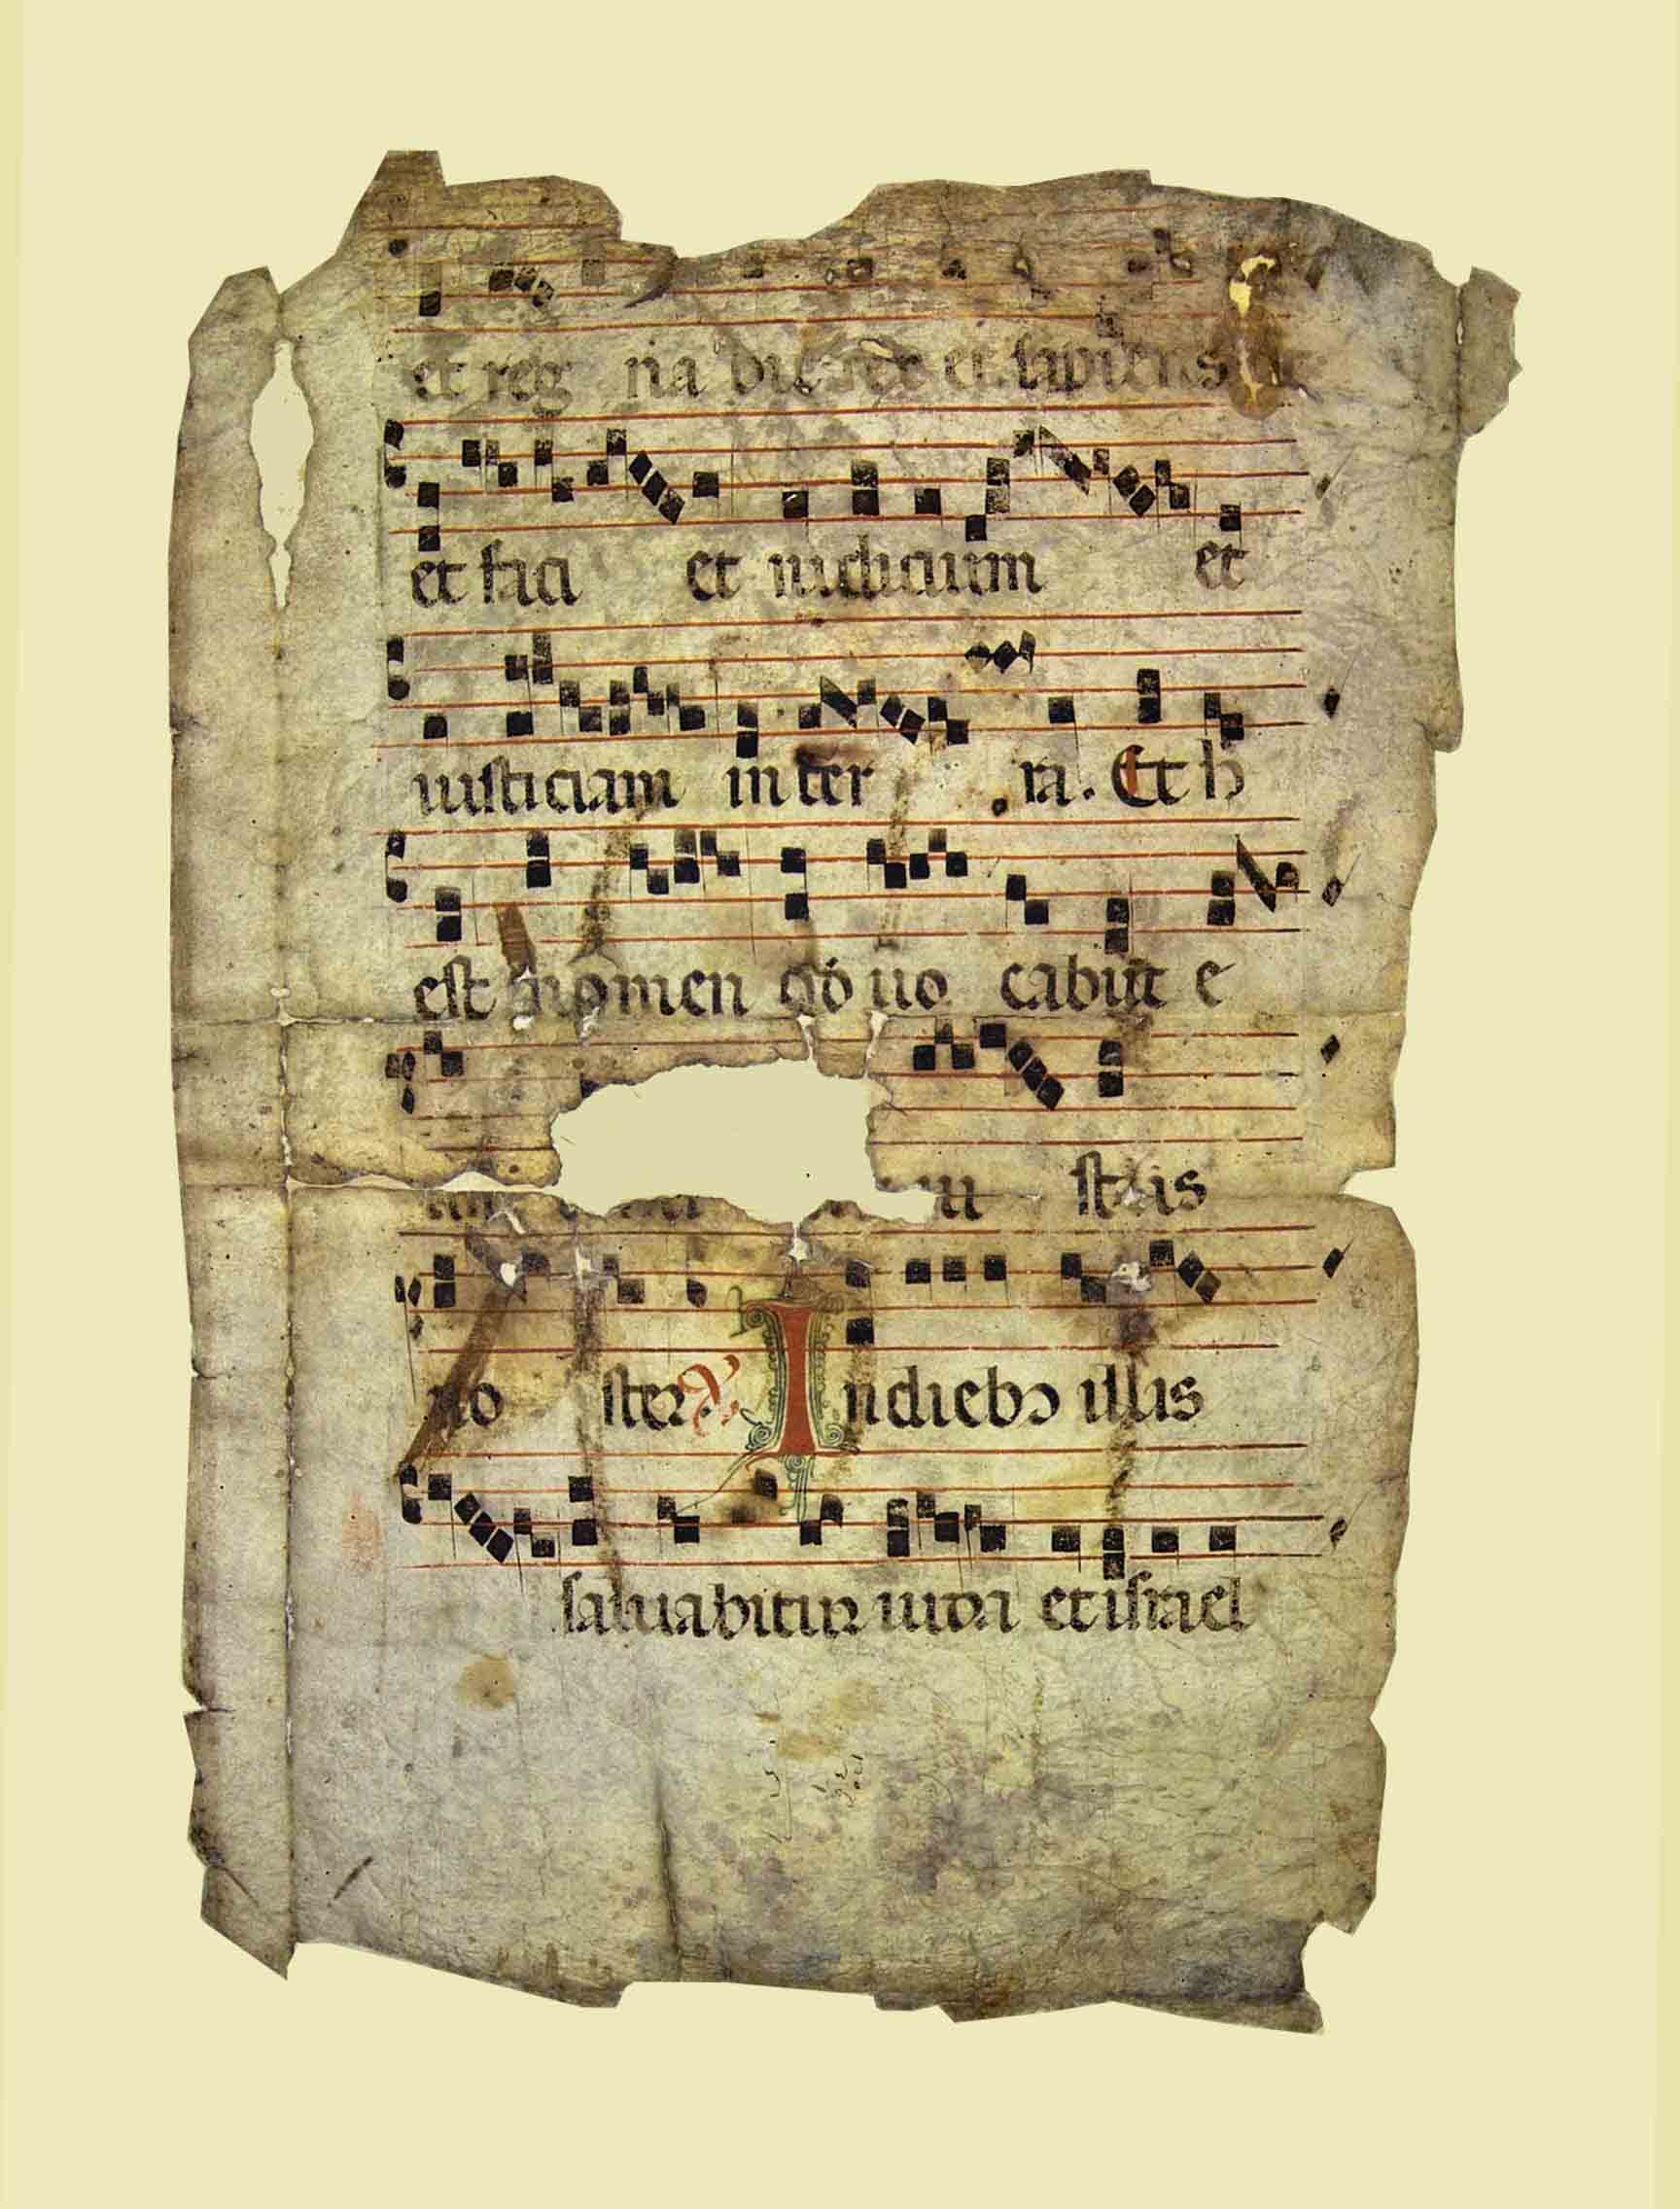 et reg na bit rex et sapiens
et faci et iudicium et
iusticiam in ter ra. Et h
est nomen qđ uo cabūt e
stus
no ster. V. Indiebꝯ illis
saluabitur iuda et israel